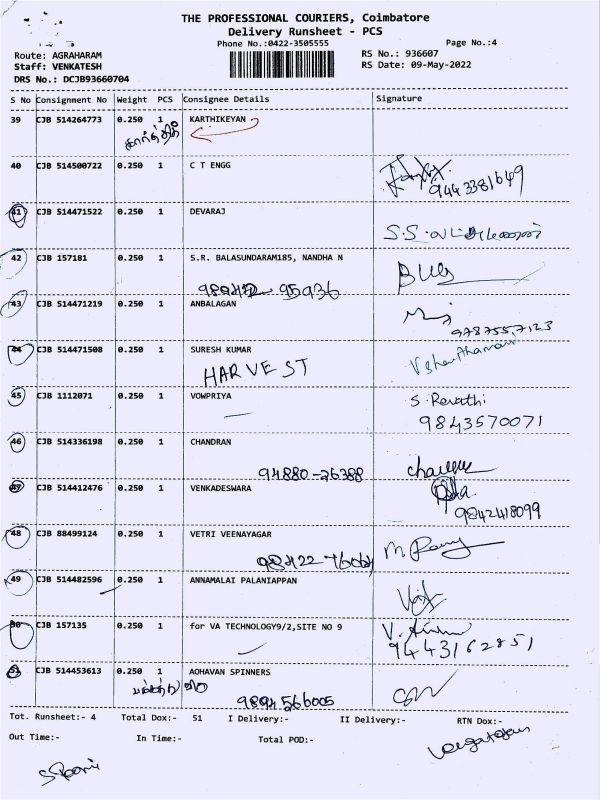 THE PROFESSIONAL COURIERS, Coimbatore
Delivery Runsheet - PCS
Phone No.:0422-3505555
Page No.:4
Route: AGRAHARAM
RS No.: 936607
Staff: VENKATESH
RS Date: 09-May-2022
DRS No.: DCJB93660704
S No Consignment No Weight PCS Consignee Details Signature
39 CJB 514264773 0.250 1 KARTHIKEYAN
கார்த்திக்
40 CJB 514500722 0.250 1 C T ENGG
9443381649
41 CJB 514471522 0.250 1 DEVARAJ
S.S.
42 CJB 157181 0.250 1 S.R. BALASUNDARAM185, NANDHA N
95936
43 CJB 514471219 0.250 1 ANBALAGAN
9787557123
44 CJB 514471508 0.250 1 SURESH KUMAR
HARVEST
45 CJB 1112071 0.250 1 VOWPRIYA
S. Revathi
9843570071
46 CJB 514336198 0.250 1 CHANDRAN
94880-26388
47 CJB 514412476 0.250 1 VENKADESWARA
9842418099
48 CJB 88499124 0.250 1 VETRI VEENAYAGAR
49 CJB 514482596 0.250 1 ANNAMALAI PALANIAPPAN
50 CJB 157135 0.250 1 for VA TECHNOLOGY9/2,SITE NO 9
9443162851
CJB 514453613 0.250 1 AOHAVAN SPINNERS
9894566005
Tot. Runsheet:- 4 Total Dox:- 51 I Delivery:- II Delivery:- RTN Dox:-
Out Time:- In Time:- Total POD:-